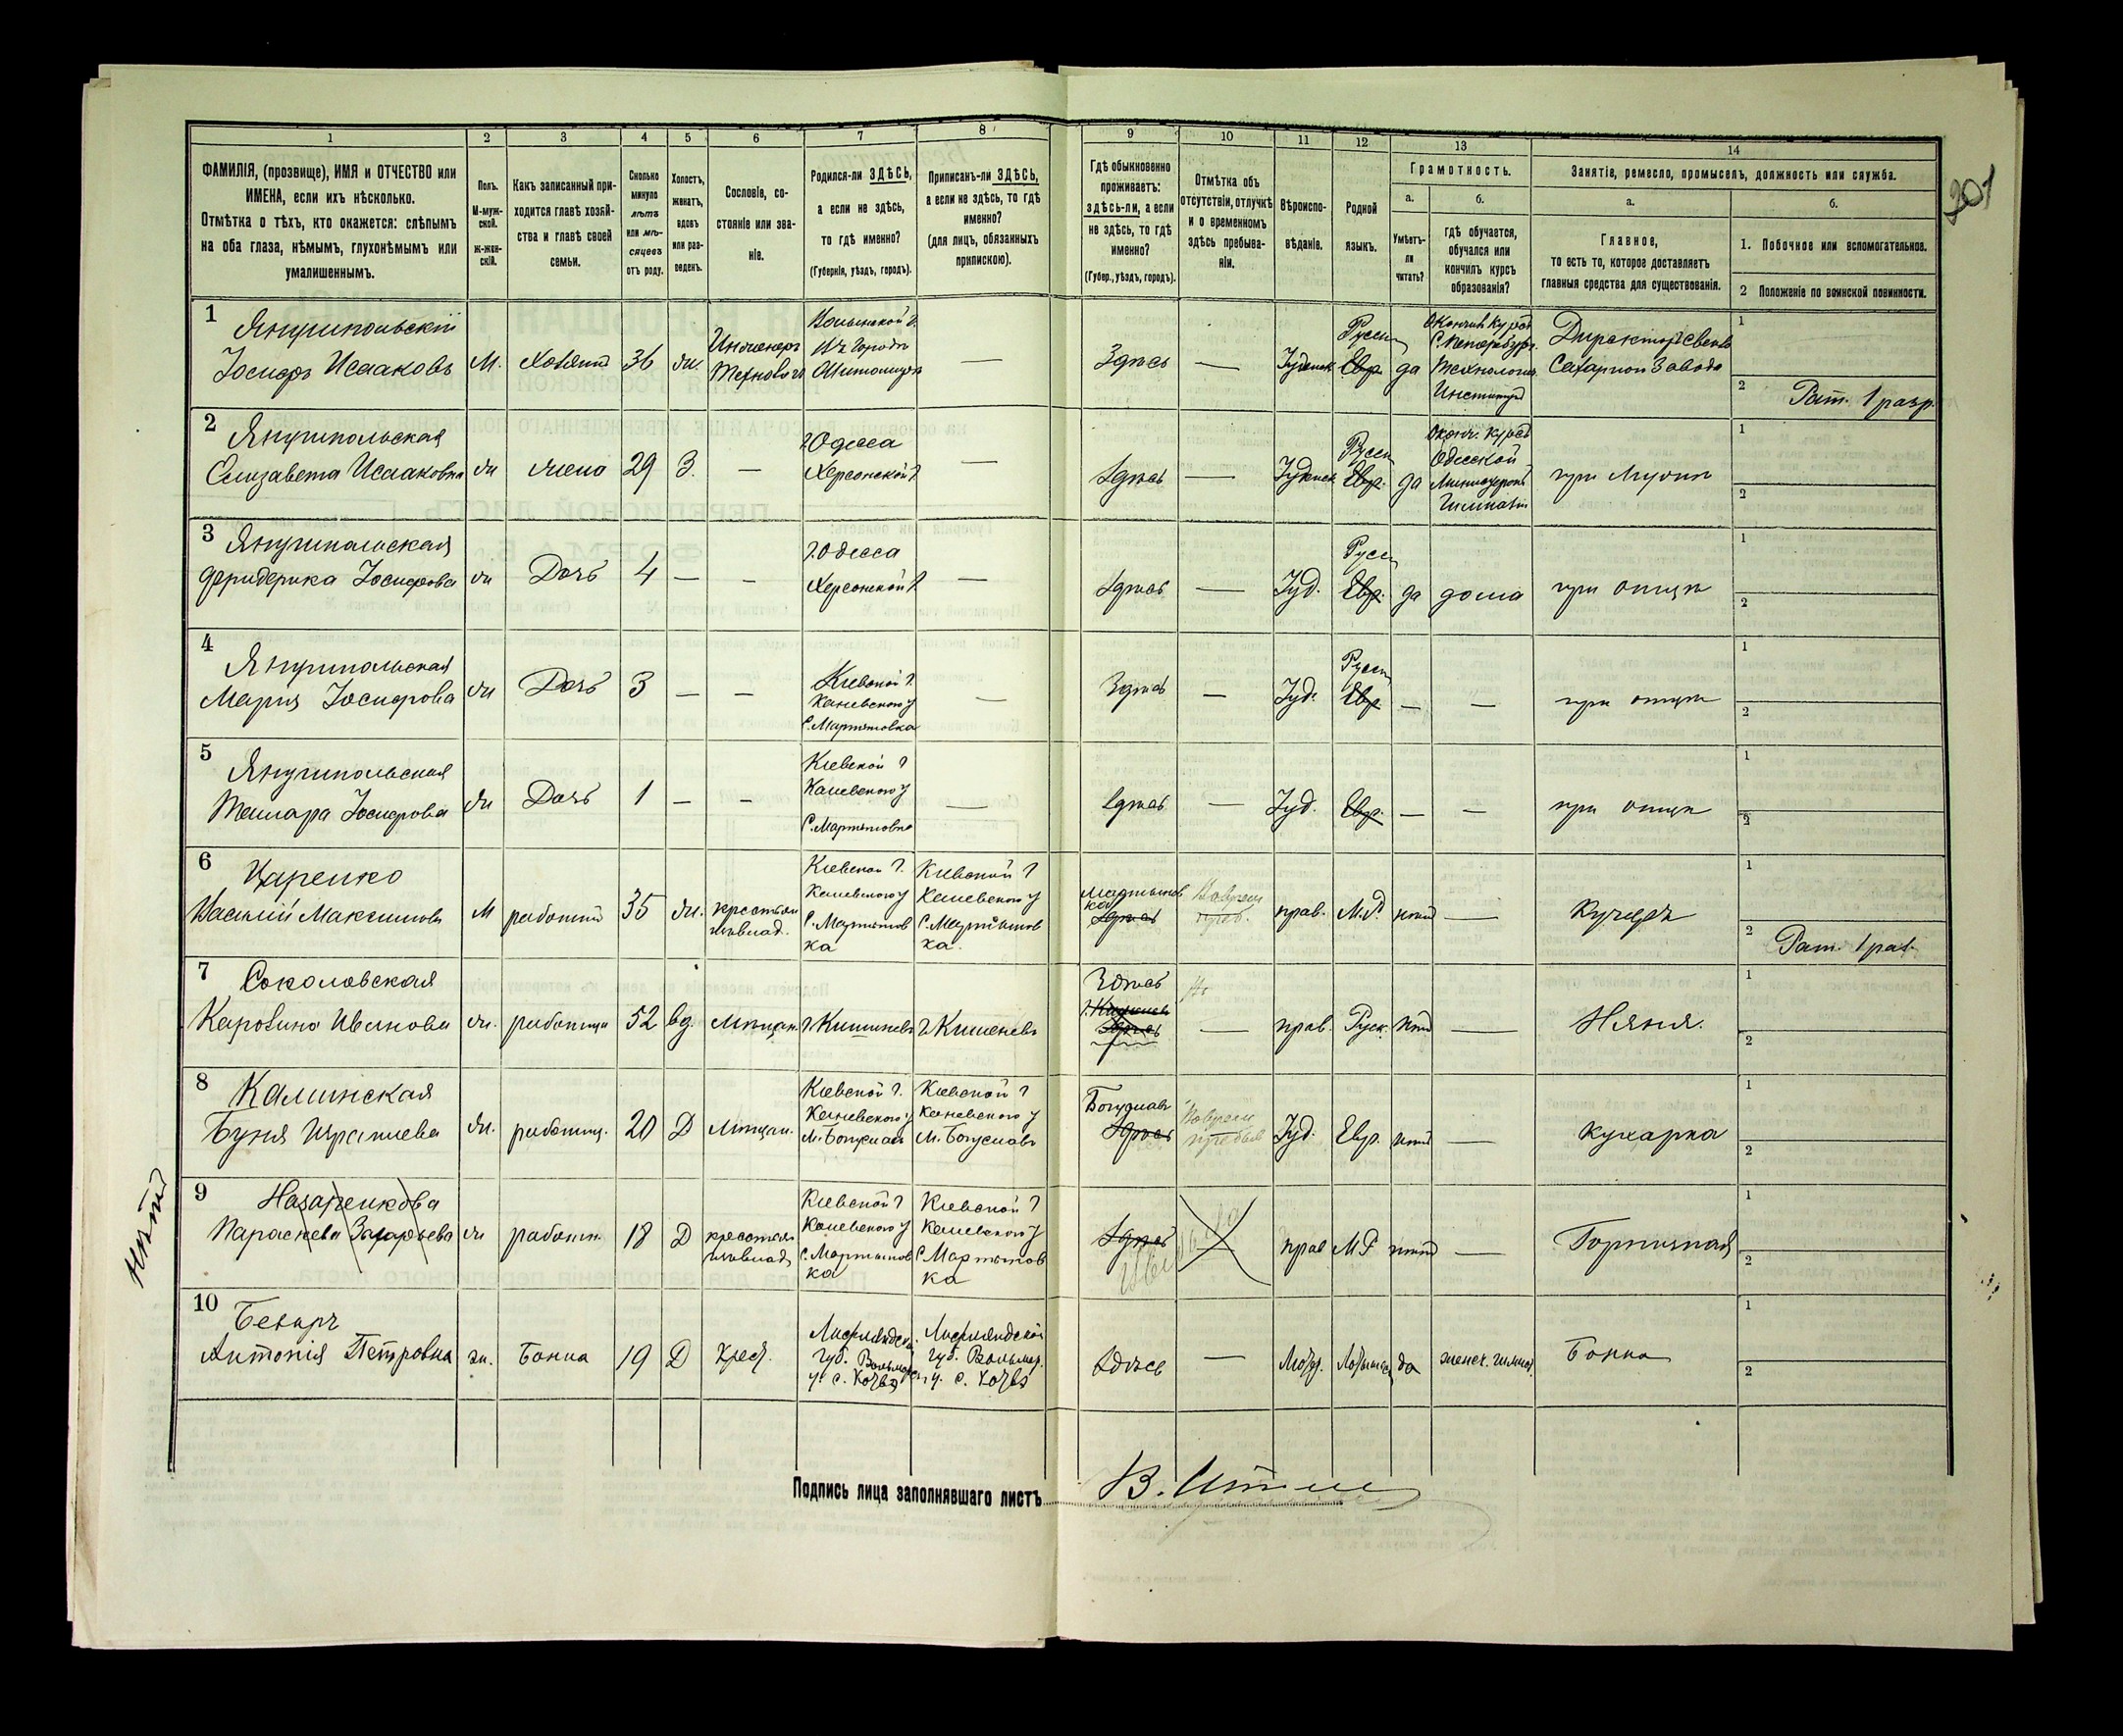 1 2 3 4 5 6 7 8 9 10 11 12 13 14
ФАМИЛІЯ, (прозвище), ИМЯ и ОТЧЕСТВО или
ИМЕНА, если ихъ нѣсколько.
Отмѣтка о тѣхъ, кто окажется: слѣпымъ
на оба глаза, нѣмымъ, глухонѣмымъ или
умалишеннымъ.
Полъ.
М-муж-
ской.
ж-жен-
скій.
Какъ записанный при-
ходится главѣ хозяй-
ства и главѣ своей
семьи.
Сколько
минуло
лѣтъ
или мѣ-
сяцевъ
отъ роду.
Холостъ,
женатъ,
вдовъ
или раз-
веденъ.
Сословіе, со-
стояніе или зва-
ніе.
Родился-ли ЗДѢСЬ,
а если не здѣсь,
то гдѣ именно?
(Губернія, уѣздъ, городъ).
Приписанъ-ли ЗДѢСЬ,
а если не здѣсь, то гдѣ
именно?
(для лицъ, обязанныхъ
припискою).
Гдѣ обыкновенно
проживаетъ:
здѣсь-ли, а если
не здѣсь, то гдѣ
именно?
(Губер., уѣздъ, городъ).
Отмѣтка объ
отсутствіи, отлучкѣ
и о временномъ
здѣсь пребыва-
ніи.
Вѣроиспо-
вѣданіе.
Родной
языкъ.
Грамотность.
а.
Умѣетъ-
ли
читать?
б.
гдѣ обучается,
обучался или
кончилъ курсъ
образованія?
Занятіе, ремесло, промыселъ, должность или служба.
а.
Главное,
то есть то, которое доставляетъ
главныя средства для существованія.
б.
1. Побочное или вспомогательное.
2 Положеніе по воинской повинности.
201
1
Янушпольскій
Іосифъ Исааковъ
М.
Хозяинъ
36
жн.
Инженеръ
Технологъ
Волынской г.
въ городѣ
Житомирѣ
—
Здѣсь
—
Іудейск
Русск
Евр.
да
Окончилъ курсъ
С. Петербург.
Технологич.
Институтъ
Директоръ Свекло
Сахарнои Завода
1
2 Рат. 1 разр.
2
Янушпольская
Елизавета Исааковна
жн
жена
29
З.
—
г Одесса
Херсонской г
—
Здѣсь
—
Іудейск
Русск
Евр.
да
Оконч. курсъ
Одесской
Гимназіи
при Мужѣ
1
2
3
Янушпольская
Фридерика Іосифова
жн
Дочь
4
—
—
г. Одесса
Херсонской г
—
Здѣсь
—
Іуд.
Русск
Евр.
да
дома
при отцѣ
1
2
4
Янушпольская
Марія Іосифова
жн
Дочь
3
—
—
Кіевской г
Каневского у
С. Мартыновка
—
Здѣсь
—
Іуд.
Русск
Евр
—
—
при отцѣ
1
2
5
Янушпольская
Тамара Іосифова
жн
Дочь
1
—
—
Кіевской г
Каневского у
С. Мартыновка
—
Здѣсь
—
Іуд.
Евр.
—
—
при отцѣ
1
2
6
Царенко
Василій Максимовъ
М
работникъ
35
жн.
крестьян
Кіевской г.
Каневского у
С. Мартынов
ка
Кіевской г
Каневского у
С. Мартынов
ка.
Мартынов
ка
Здѣсь
прав.
М.Р.
нѣтъ
—
Кучеръ
1
2 Рат. 1 раз.
7
Соколовская
Каролина Иванова
жн.
работница
52
вд.
Мѣщан.
г Кишиневъ
г Кишеневъ
Здѣсь
г. Кишинев
Здѣсь
—
прав.
Руск.
нѣтъ
—
Няня.
1
2
8
Калинская
Буня Израилева
жн.
работниц.
20
Д
Мѣщан.
Кіевской г.
Каневского у
М. Богуслав
Кіевской г
Каневского у
М. Богуславъ
Богуславъ
Здѣсь
Іуд.
Евр.
нѣтъ
—
кухарка
1
2
нѣтъ
9
Назаренкова
Параскева Захарьева
жн
работн.
18
Д
крестьян
Кіевской г
Каневского у
С. Мартынов
ка
Кіевской г
Каневского у
С Мартынов
ка
Здѣсь
прав
М Р
нѣтъ
—
Горничная
1
2
10
Антонія Петровна
жн.
Бонна
19
Д
Крест.
Лифляндск.
губ. Вольмар.
у. с.
Лифляндской
губ. Вольмар.
у. с.
Здѣсь
—
Лютр.
Латышск.
да
женск. гимназ.
Бонна
1
2
Подпись лица заполнявшаго листъ